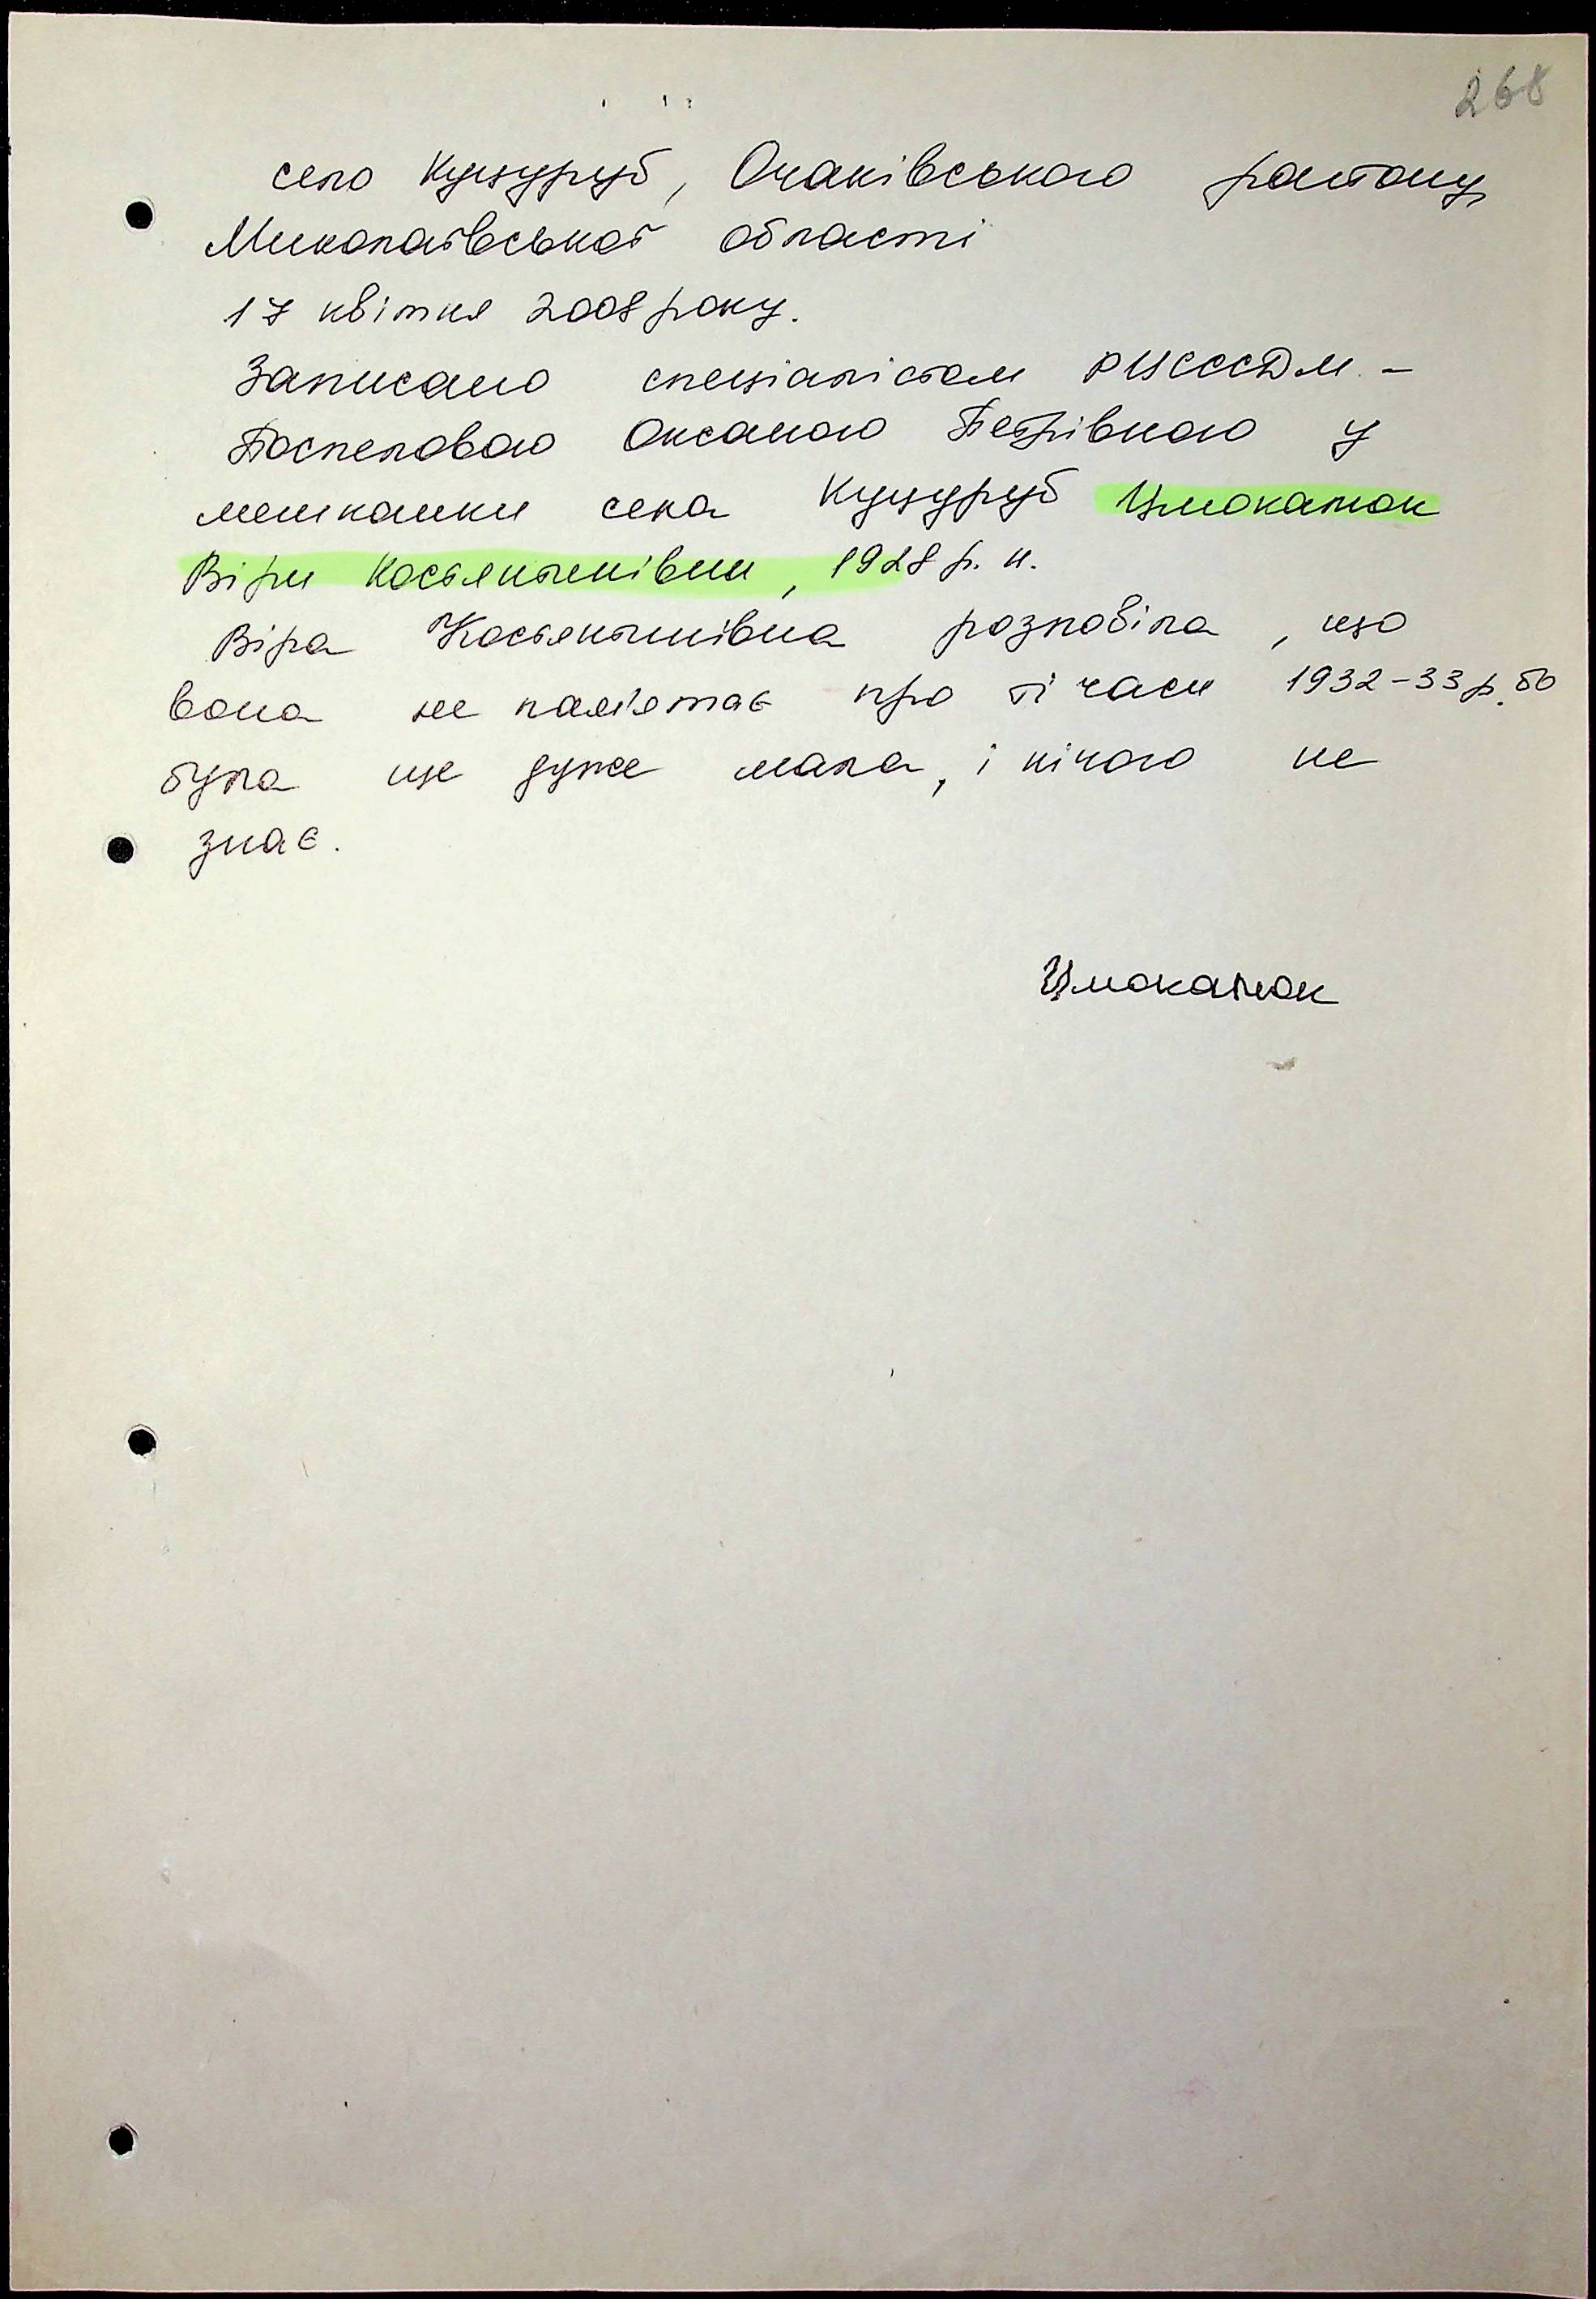 268
село Куцуруб, Очаківського району,
Миколаївської області
17 квітня 2008 року.
Записано спеціалістом РЦСССДМ. -
Поспеловою Оксаною Петрівною у
мешканки села Куцуруб Цмоканюк
Віри Костянтинівни, 1928 р. н.
Віра Костянтинівна розповіла, що
вона не пам'ятає про ті часи 1932-33 р. бо
була ще дуже мала, і нічого не
знає.
Цмоканюк